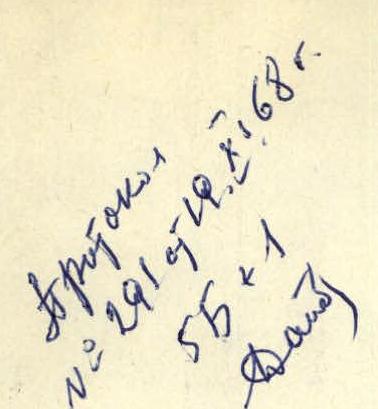 Протокол
№ 291 от 19.XI.68 г.
5Б к 1